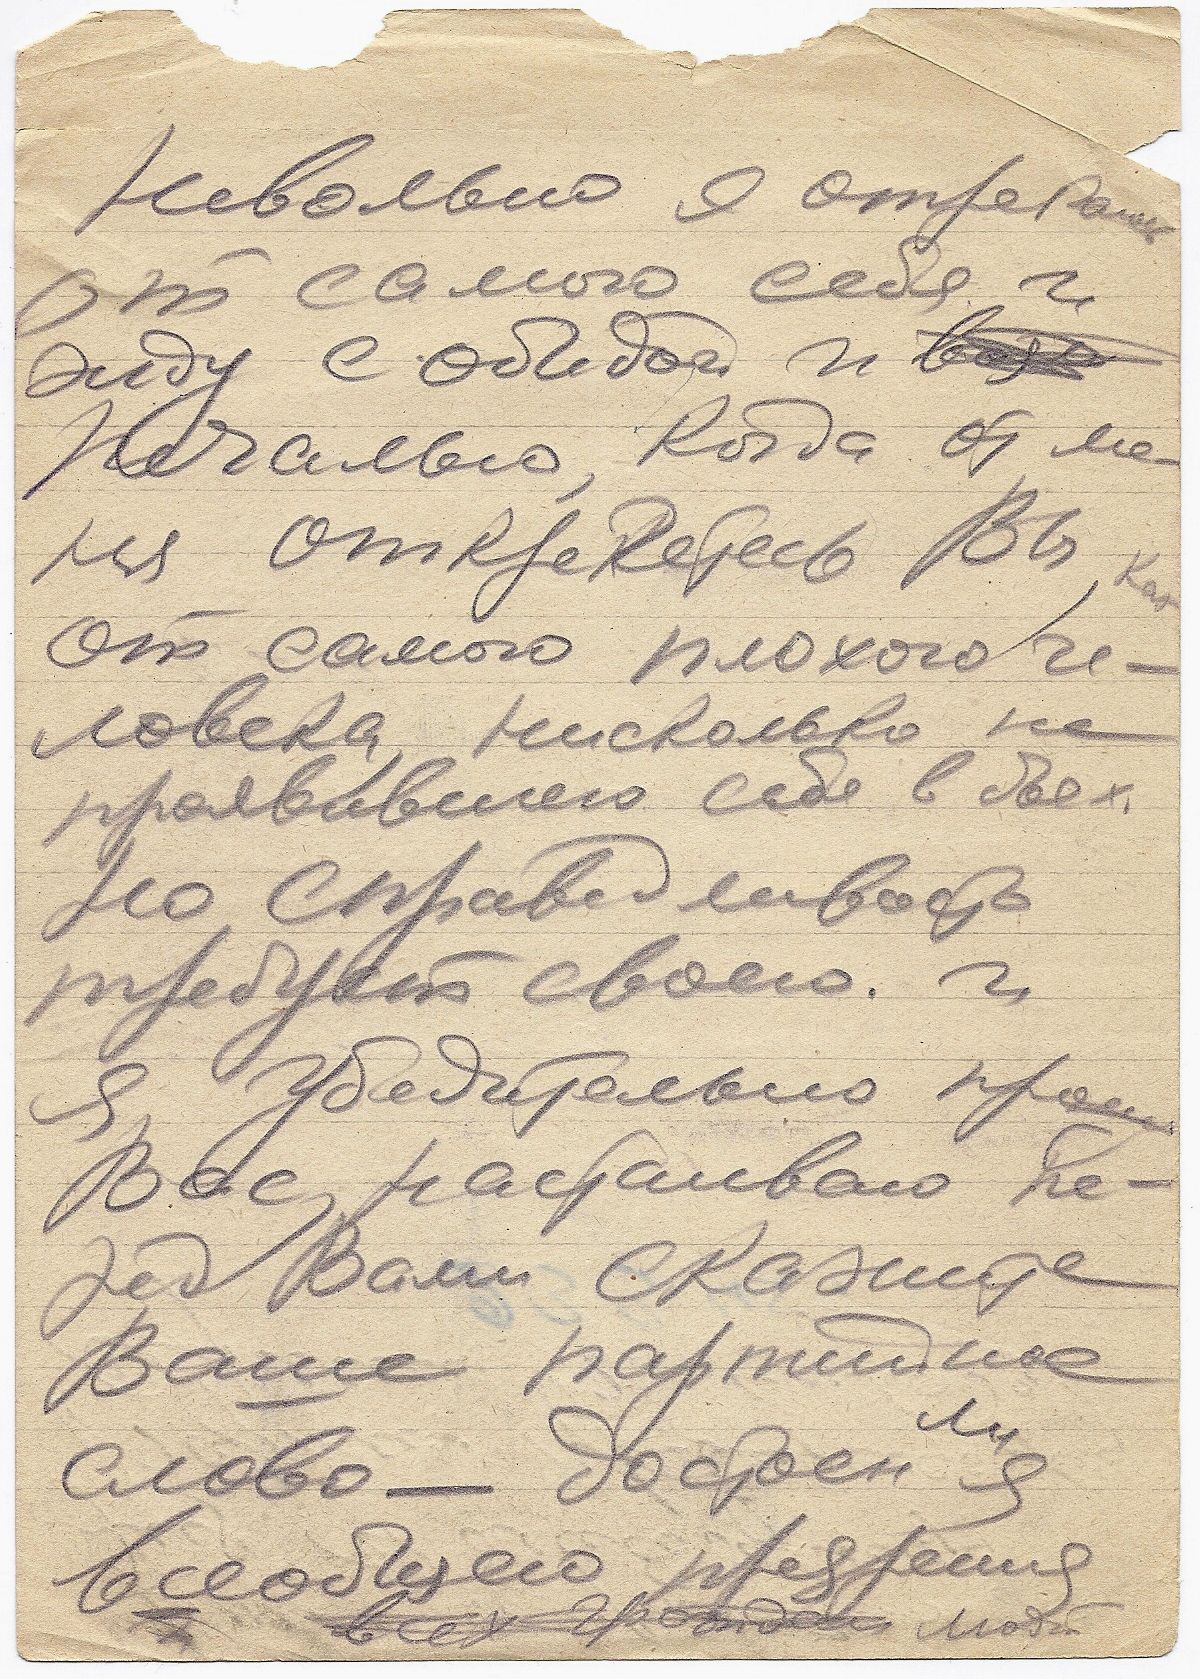 Невольно я отрекаюсь
от самого себя и
жду с обидой и
печалью, когда от ме-
ня откажетесь Вы, как
от самого плохого че-
ловека, нисколько не
проявившего себя в боях.
Но справедливость
требует своего. и
я, убедительно прошу
Вас, настаиваю пе-
ред Вами скажите
Ваше партийное
слово — достоен ли я
всеобщего презрения
всех граждан людей